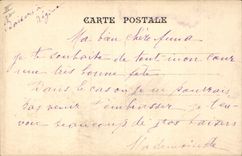 CARTE POSTALE
Ma bien chère
je te souhaite de tout mon cœur
une très bonne fête
Dans le cas où je ne pourrais
pas venir t'embrasser je t'en
voie beaucoup de gros baisers